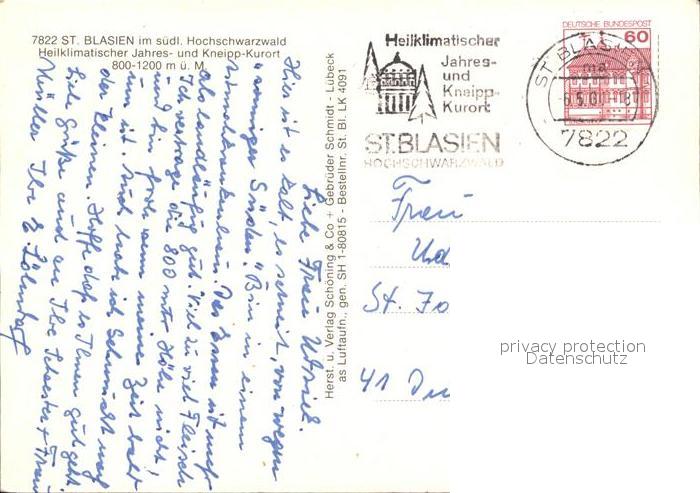 7822 ST. BLASIEN im südl. Hochschwarzwald
Heilklimatischer Jahres- und Kneipp-Kurort
800-1200 m ü. M.
Liebe Frau
Hier ist es kalt, es schneit, von wegen
"sonniger Süden." Bin in einem
Das Essen ist mehr
als landläufig gut. Viel zu viel Fleisch
Ich vertrage die 800 mtr Höhe nicht,
und bin froh wenn meine Zeit bald
um ist. Auch hab ich Sehnsucht nach
der Kleinen. Hoffe daß es Ihnen gut geht.
Liebe Grüße auch an Ihre Schwester + Frau
Müller Ihre E.
Herst. u. Verlag Schöning & Co + Gebrüder Schmidt - Lübeck
as Luftaufn., gen. SH 1-80815 - Bestellnr. St. Bl. LK 4091
Heilklimatischer
Jahres-
und
Kneipp-
Kurort
ST.BLASIEN
HOCHSCHWARZWALD
DEUTSCHE BUNDESPOST
60
ST. BLASIEN
7822
Frau
St. Jo
41 Du
privacy protection
Datenschutz